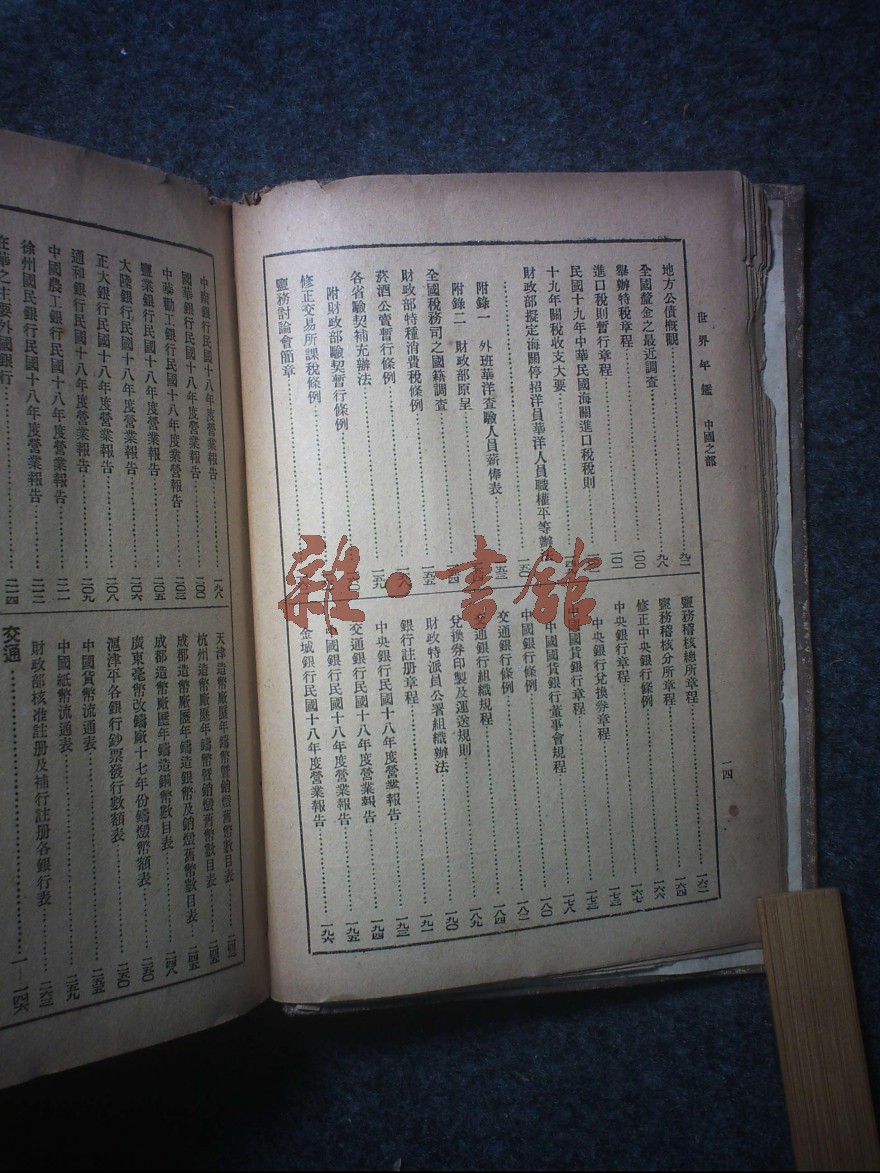 世界年鑑 中國之部
一四
地方公債概觀 九二
全國釐金之最近調查 九八
舉辦特稅章程 一〇〇
進口稅則暫行章程 一〇一
民國十九年中華民國海關進口稅稅則
十九年關稅收支大要
財政部擬定海關停招洋員華洋人員職權平等辦法 一五〇
附錄一 外班華洋查驗人員薪俸表
附錄二 財政部原呈
全國稅務司之國籍調查 一五五
財政部特種消費稅條例
菸酒公賣暫行條例 一五九
各省驗契補充辦法
附財政部驗契暫行條例
修正交易所課稅條例
鹽務討論會簡章
鹽務稽核總所章程 一六二
鹽務稽核分所章程 一六四
修正中央銀行條例 一六六
中央銀行章程 一六七
中央銀行兌換券章程 一七三
中國國貨銀行章程
中國國貨銀行董事會規程 一七八
中國銀行條例 一八〇
交通銀行條例 一八二
交通銀行組織規程
兌換券印製及運送規則 一九〇
財政特派員公署組織辦法 一九一
銀行註册章程
中央銀行民國十八年度營業報告 一九四
交通銀行民國十八年度營業報告 一九五
中國銀行民國十八年度營業報告
金城銀行民國十八年度營業報告 一九六
中南銀行民國十八年度營業報告 一九八
國華銀行民國十八年度營業報告 二〇〇
中華勸工銀行民國十八年度業營報告
鹽業銀行民國十八年度營業報告 二〇五
大陸銀行民國十八年度營業報告 二〇六
正大銀行民國十八年度營業報告 二〇八
通和銀行民國十八年度營業報告 二〇九
中國農工銀行民國十八年度營業報告
徐州國民銀行民國十八年度營業報告
在華之主要外國銀行 二一四
天津造幣廠歷年鑄幣暨銷燬舊幣數目表
杭州造幣廠歷年鑄幣暨銷燬舊幣數目表
成都造幣廠歷年鑄造銀幣及銷燬舊幣數目表
成都造幣廠歷年鑄造銅幣數目表 二四八
廣東毫幣改鑄廠十七年份鑄燬幣額表
滬津平各銀行鈔票發行數額表 二五〇
中國貨幣流通表
中國紙幣流通表 二五九
財政部核准註册及補行註册各銀行表 二六三
交通 一—一四六
雜·書館